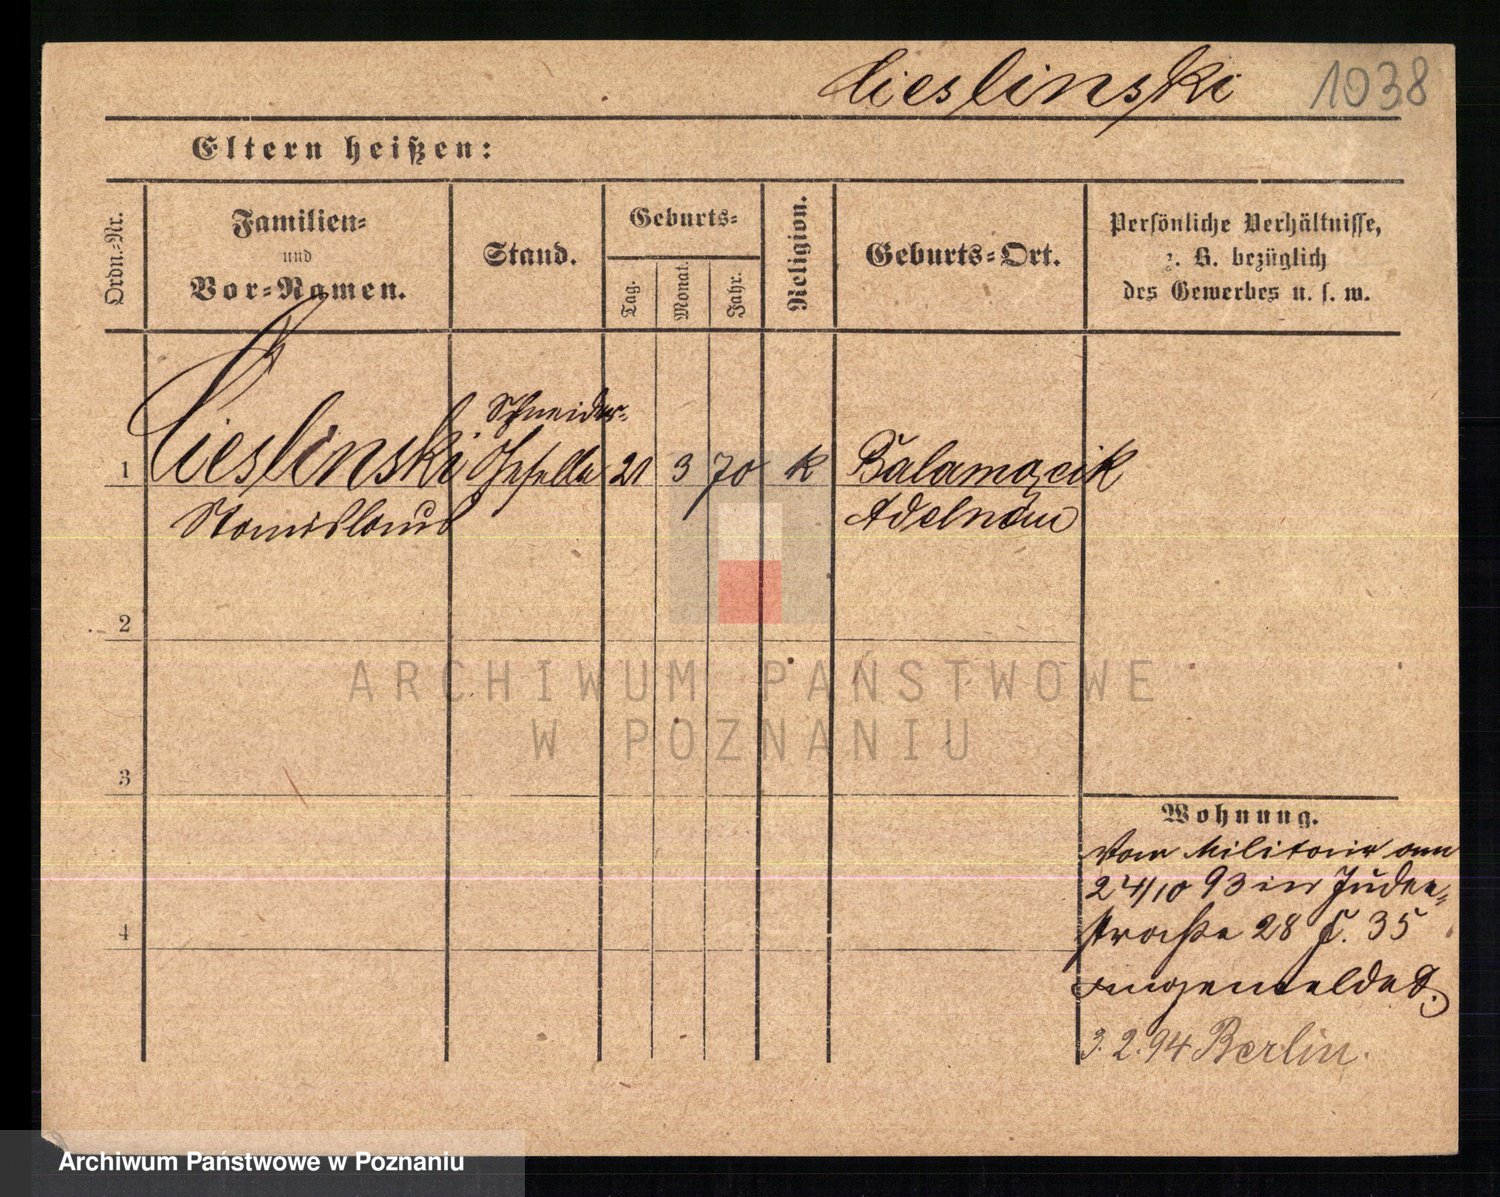 Cieslinski 1038
Eltern heißen:
Ordn.-Nr.
Familien-
und
Vor-Namen.
Stand.
Geburts-
Tag.
Monat.
Jahr.
Religion.
Geburts-Ort.
Persönliche Verhältnisse,
z. B. bezüglich
des Gewerbes u. s. w.
Schneider-
1 Cieslinski Geselle 21 3 70 k Balamącik
Stanislaus Adelnau
2
3
4
Wohnung.
Vom Militair am
24/10 93 in Juden-
straße 28 b. 35
angemeldet.
3.2.94 Berlin.
ARCHIWUM PAŃSTWOWE
W POZNANIU
Archiwum Państwowe w Poznaniu